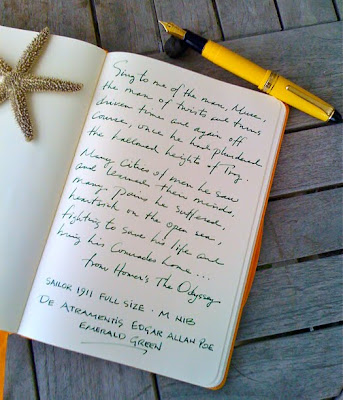 Sing to me of the man, Muse,
the man of twists and turns
driven time and again off
course, once he had plundered
the hallowed heights of Troy.
Many cities of men he saw
and learned their minds,
many pains he suffered,
heartsick on the open sea,
fighting to save his life and
bring his comrades home...
from Homer's The Odyssey
SAILOR 1911 FULL SIZE · M NIB
DE ATRAMENTIS EDGAR ALLAN POE
EMERALD GREEN